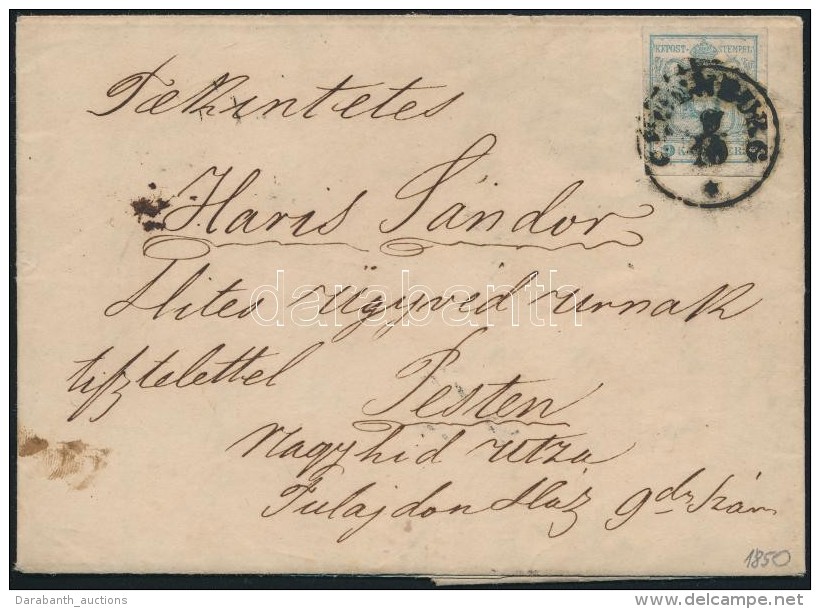 KKPOST-STEMPEL
9 KREUZER
7
10
Tekintetes
Haris Sándor
Hites ügyvéd urnak
darabanth
tisztelettel Pesten
Nagyhid utza
Tulajdon Ház 9dik szám
1850
Darabanth_auctions
delcampe.net